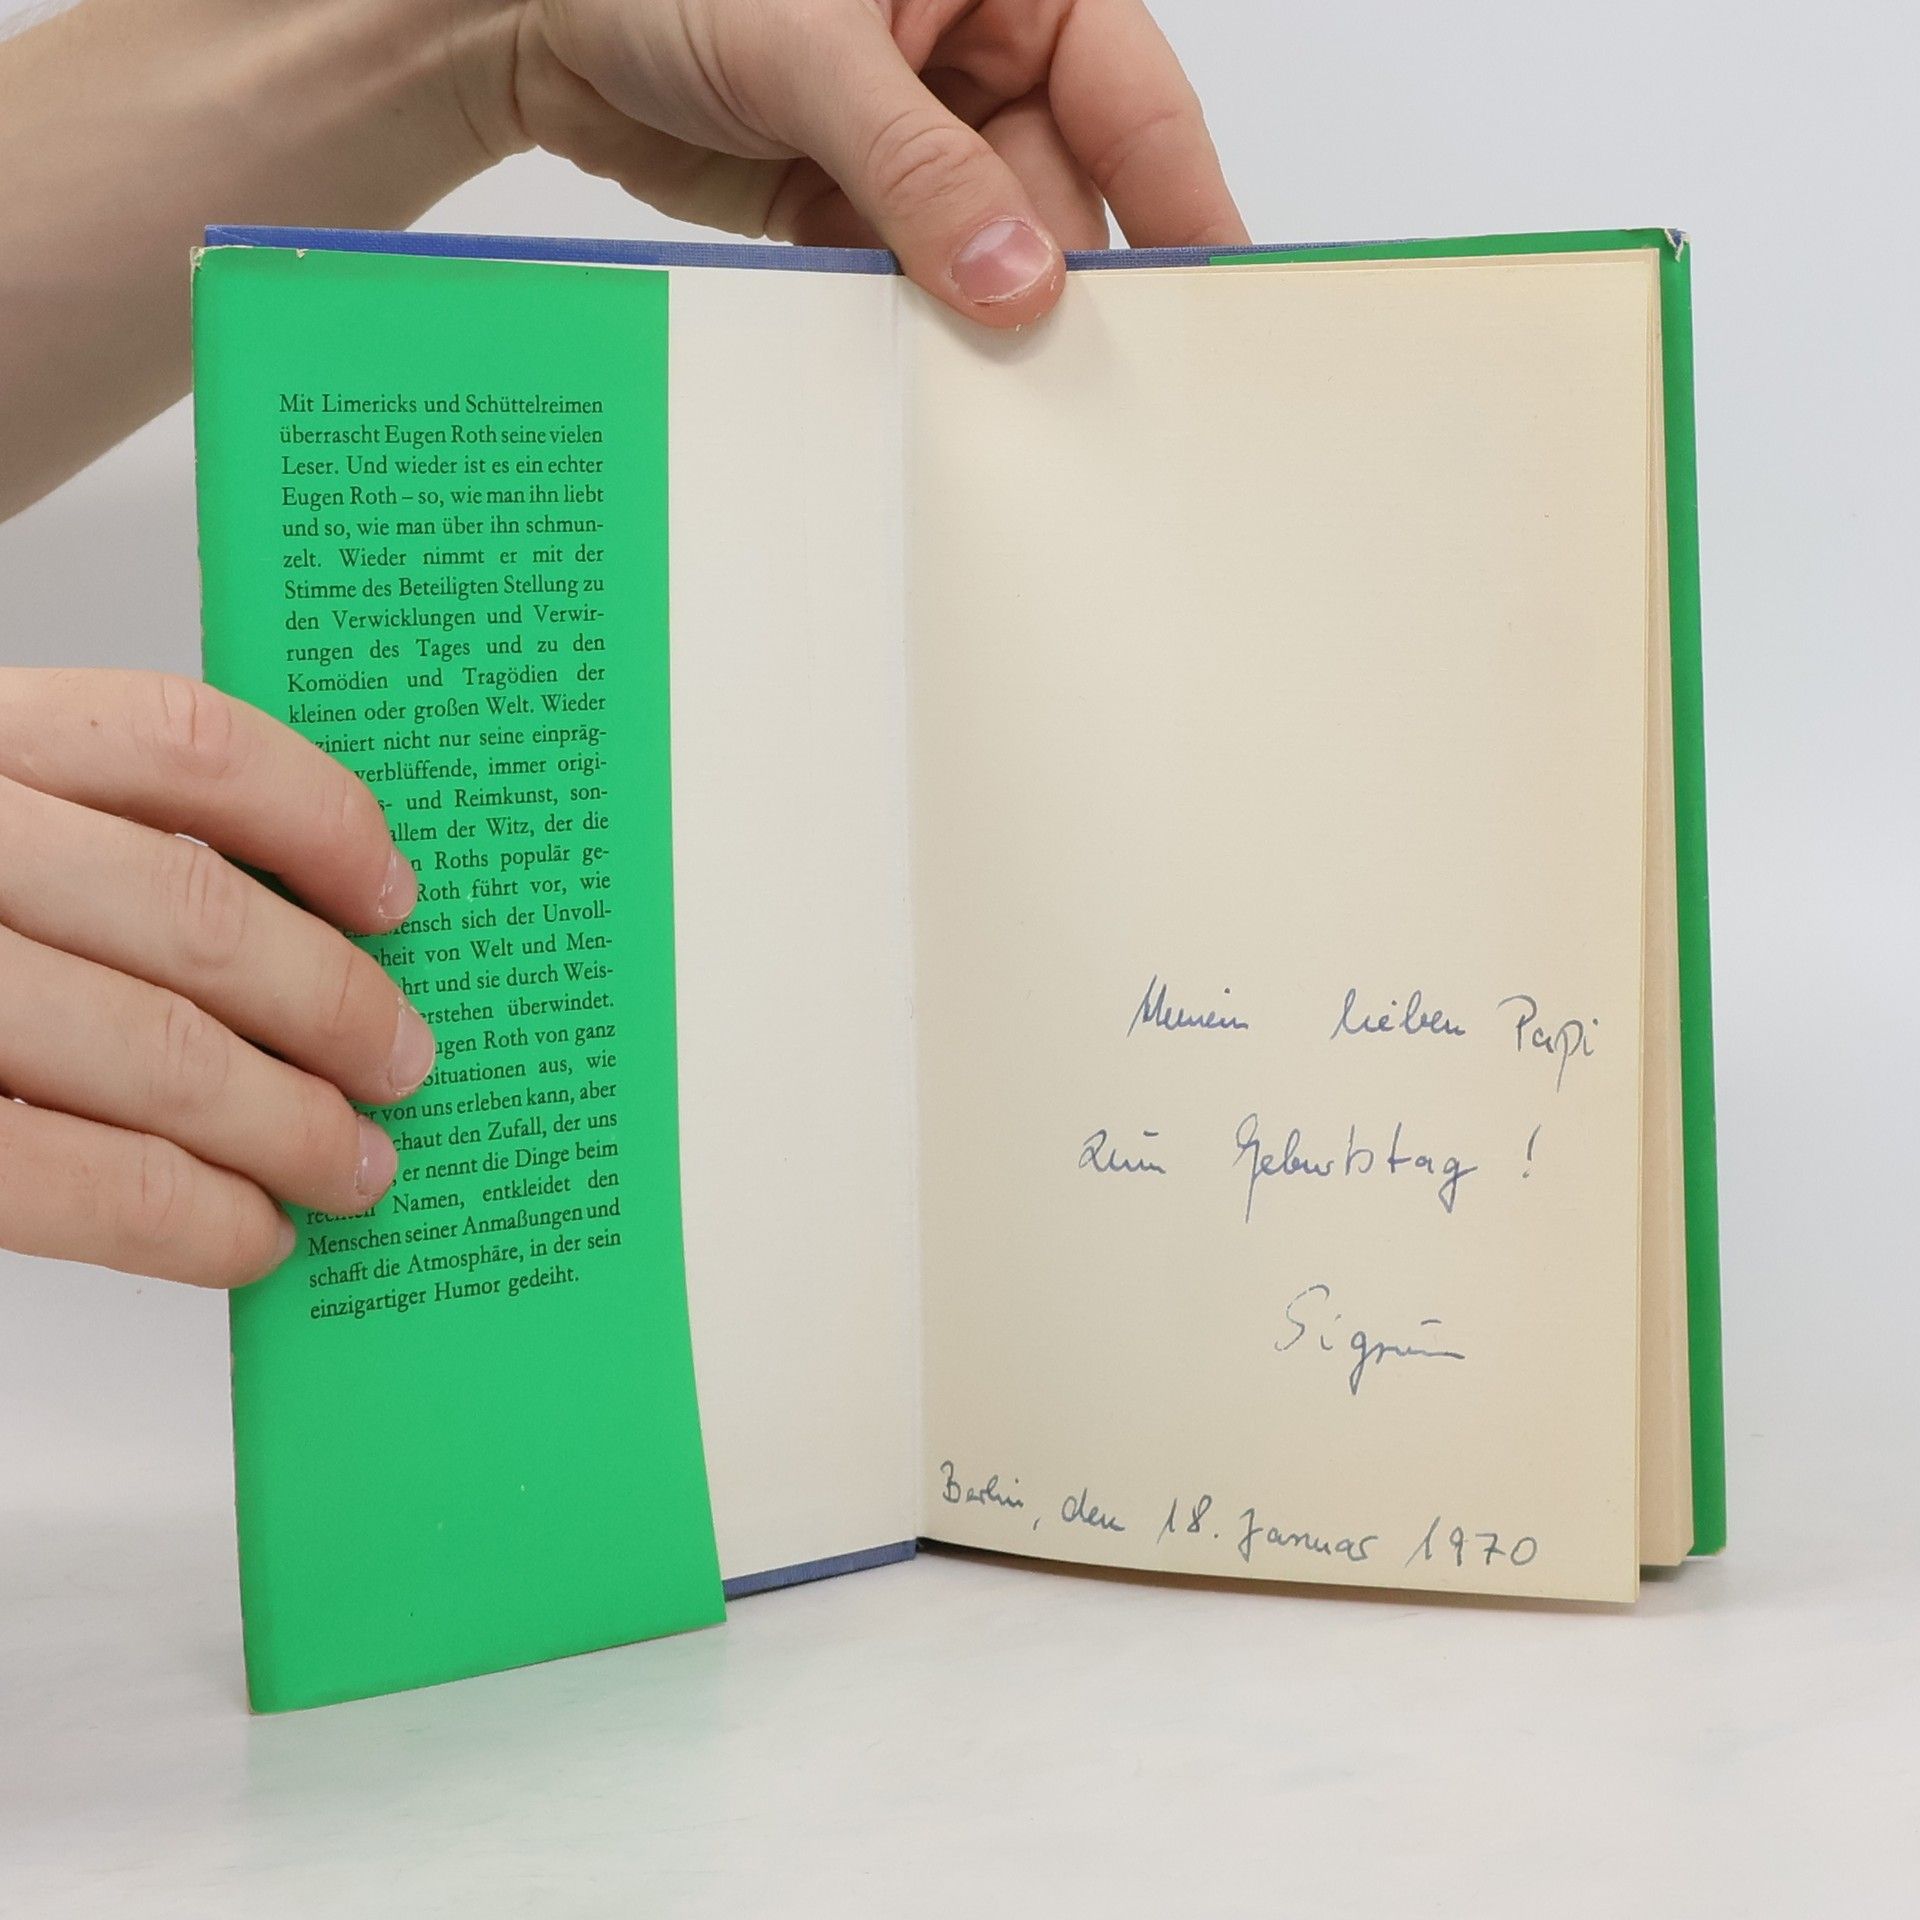 Mit Limericks und Schüttelreimen
überrascht Eugen Roth seine vielen
Leser. Und wieder ist es ein echter
Eugen Roth – so, wie man ihn liebt
und so, wie man über ihn schmun-
zelt. Wieder nimmt er mit der
Stimme des Beteiligten Stellung zu
den Verwicklungen und Verwir-
rungen des Tages und zu den
Komödien und Tragödien der
kleinen oder großen Welt. Wieder
ziniert nicht nur seine einpräg-
verblüffende, immer origi-
s- und Reimkunst, son-
allem der Witz, der die
n Roths populär ge-
Roth führt vor, wie
Mensch sich der Unvoll-
heit von Welt und Men-
hrt und sie durch Weis-
erstehen überwindet.
ugen Roth von ganz
Situationen aus, wie
er von uns erleben kann, aber
chaut den Zufall, der uns
, er nennt die Dinge beim
rechten Namen, entkleidet den
Menschen seiner Anmaßungen und
schafft die Atmosphäre, in der sein
einzigartiger Humor gedeiht.
Meinem lieben Papi
zum Geburtstag !
Sigrun
Berlin, den 18. Januar 1970